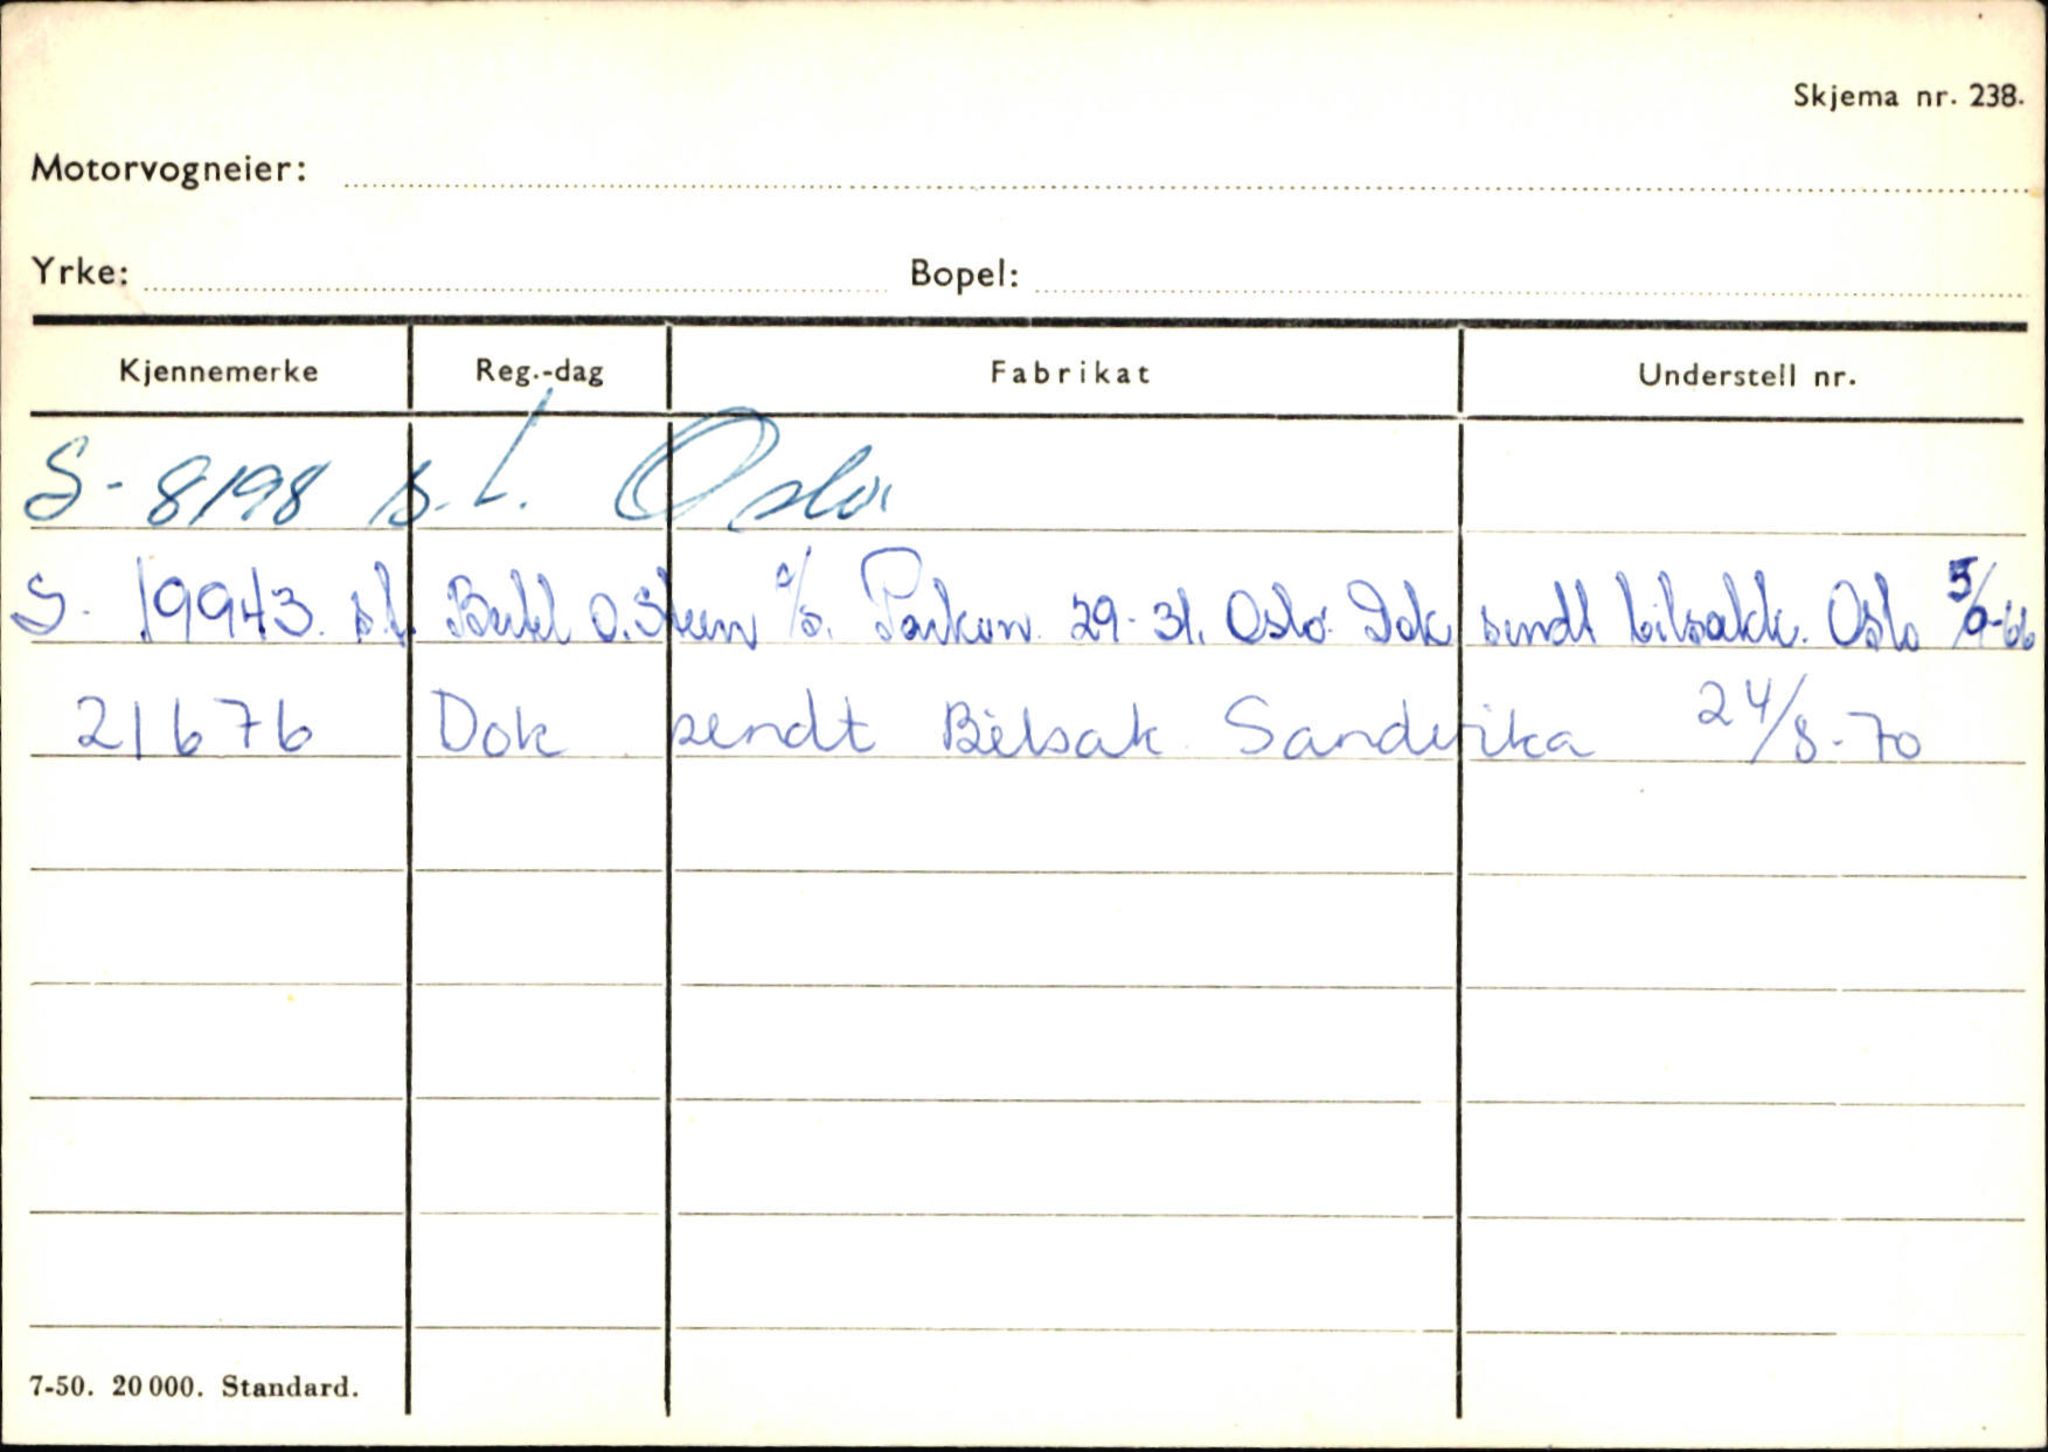 Skjema nr. 238.
Motorvogneier:
Yrke: Bopel:
Kjennemerke Reg.-dag Fabrikat Understell nr.
S-8198 s.l. Oslo
S. 19943. s.l. Bertel O. Steen a/s. Parkvn. 29-31. Oslo. Dok sendt bilsakk. Oslo 5/9-66
21676 Dok sendt Bilsak. Sandvika 24/8-70
7-50. 20 000. Standard.